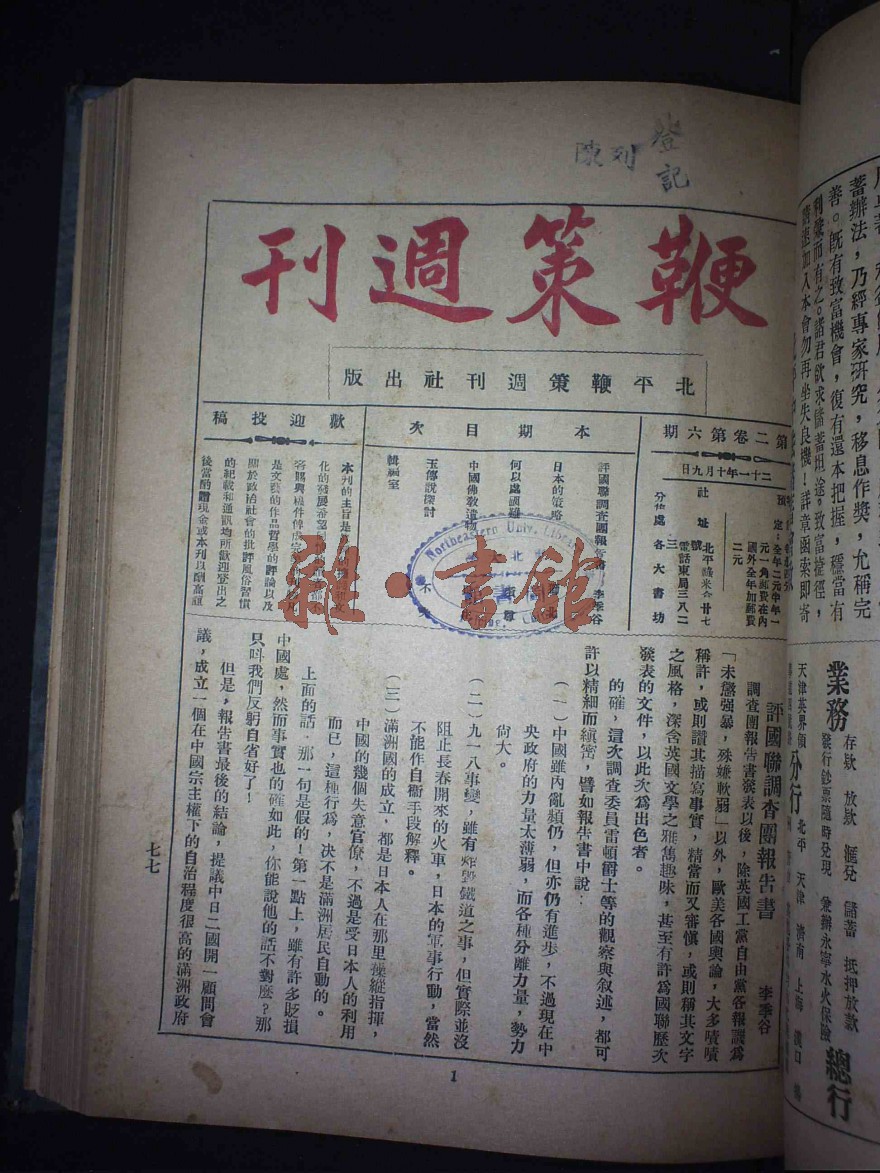 登記
陳列
鞭策週刊
北平鞭策週刊社出版
第二卷第六期
二十一年十月九日
社址
北平
電話東局三八二
三
分售處 各大書坊
定:全年二元半年一
元一角郵費在內
國外全年加郵費
二元
本期目次
評國聯調查團報告書 李季谷
日本的策略
何以處國難
中國佛教遺物
玉傳說探討
編輯室
歡迎投稿
本刊的主旨是
化的發展希望
是文藝的作品哲學的評論以及
關於政治社會的批評風俗習慣
的紀載和通訊均所歡迎登出之
後當酌贈現金或本刊以酬高誼
Northeastern Univ. Library
雜·書館
評國聯調查團報告書 李季谷
調查團報告書發表以後,除英國工黨自由黨各報譏為
「未懲強暴,殊嫌軟弱」以外,歐美各國輿論,大多嘖嘖
稱許,或則讚其描寫事實,精當而又審慎,或則稱其文字
之風格,深含英國文學之雅雋趣味,甚至有許為國聯歷次
發表的文件,以此次為出色者。
的確,這次調查委員雷頓爵士等的觀察與叙述,都可
許以精細而縝密,譬如報告書中說:
(一)中國雖內亂頻仍,但亦仍有進步,不過現在中
央政府的力量太薄弱,而各種分離力量,勢力
尙大。
(二)九一八事變,雖有炸毀鐵道之事,但實際並沒
阻止長春開來的火車,日本的軍事行動,當然
不能作自衞手段解釋。
(三)滿洲國的成立,都是日本人在那里操縱指揮,
中國的幾個失意官僚,不過是受日本人的利用
而已,這種行為,决不是滿洲居民自動的。
上面的話,那一句是假的!第一點上,雖有許多貶損
中國處,然而事實也的確如此,你能說他的話不對麽?那
只叫我們反躬自省好了!
但是,報告書最後的結論,提議中日二國開一顧問會
議,成立一個在中國宗主權下的自治程度很高的滿洲政府
七七
1
蓄辦法,乃經專家研究,移息作獎,允稱完
善。既有致富機會,復有還本把握,穩當有
利獎而有之。諸君欲求儲蓄坦途,致富捷徑,
請速加入本會勿再坐失良機!詳章函索即寄
業務
存欵 放欵 滙兌 儲蓄 抵押放款
發行鈔票隨時兌現 兼辦永寧水火保險
總行
天津英界領
分行
北平 天津 濟南 上海 漢口